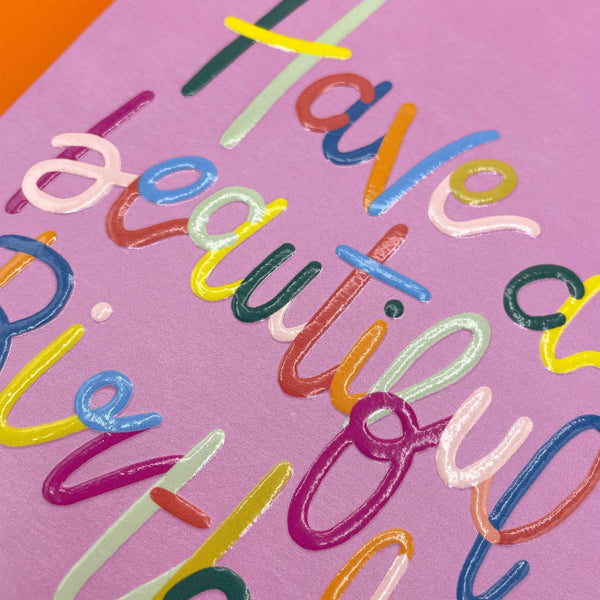 Have a
beautiful
Birthd